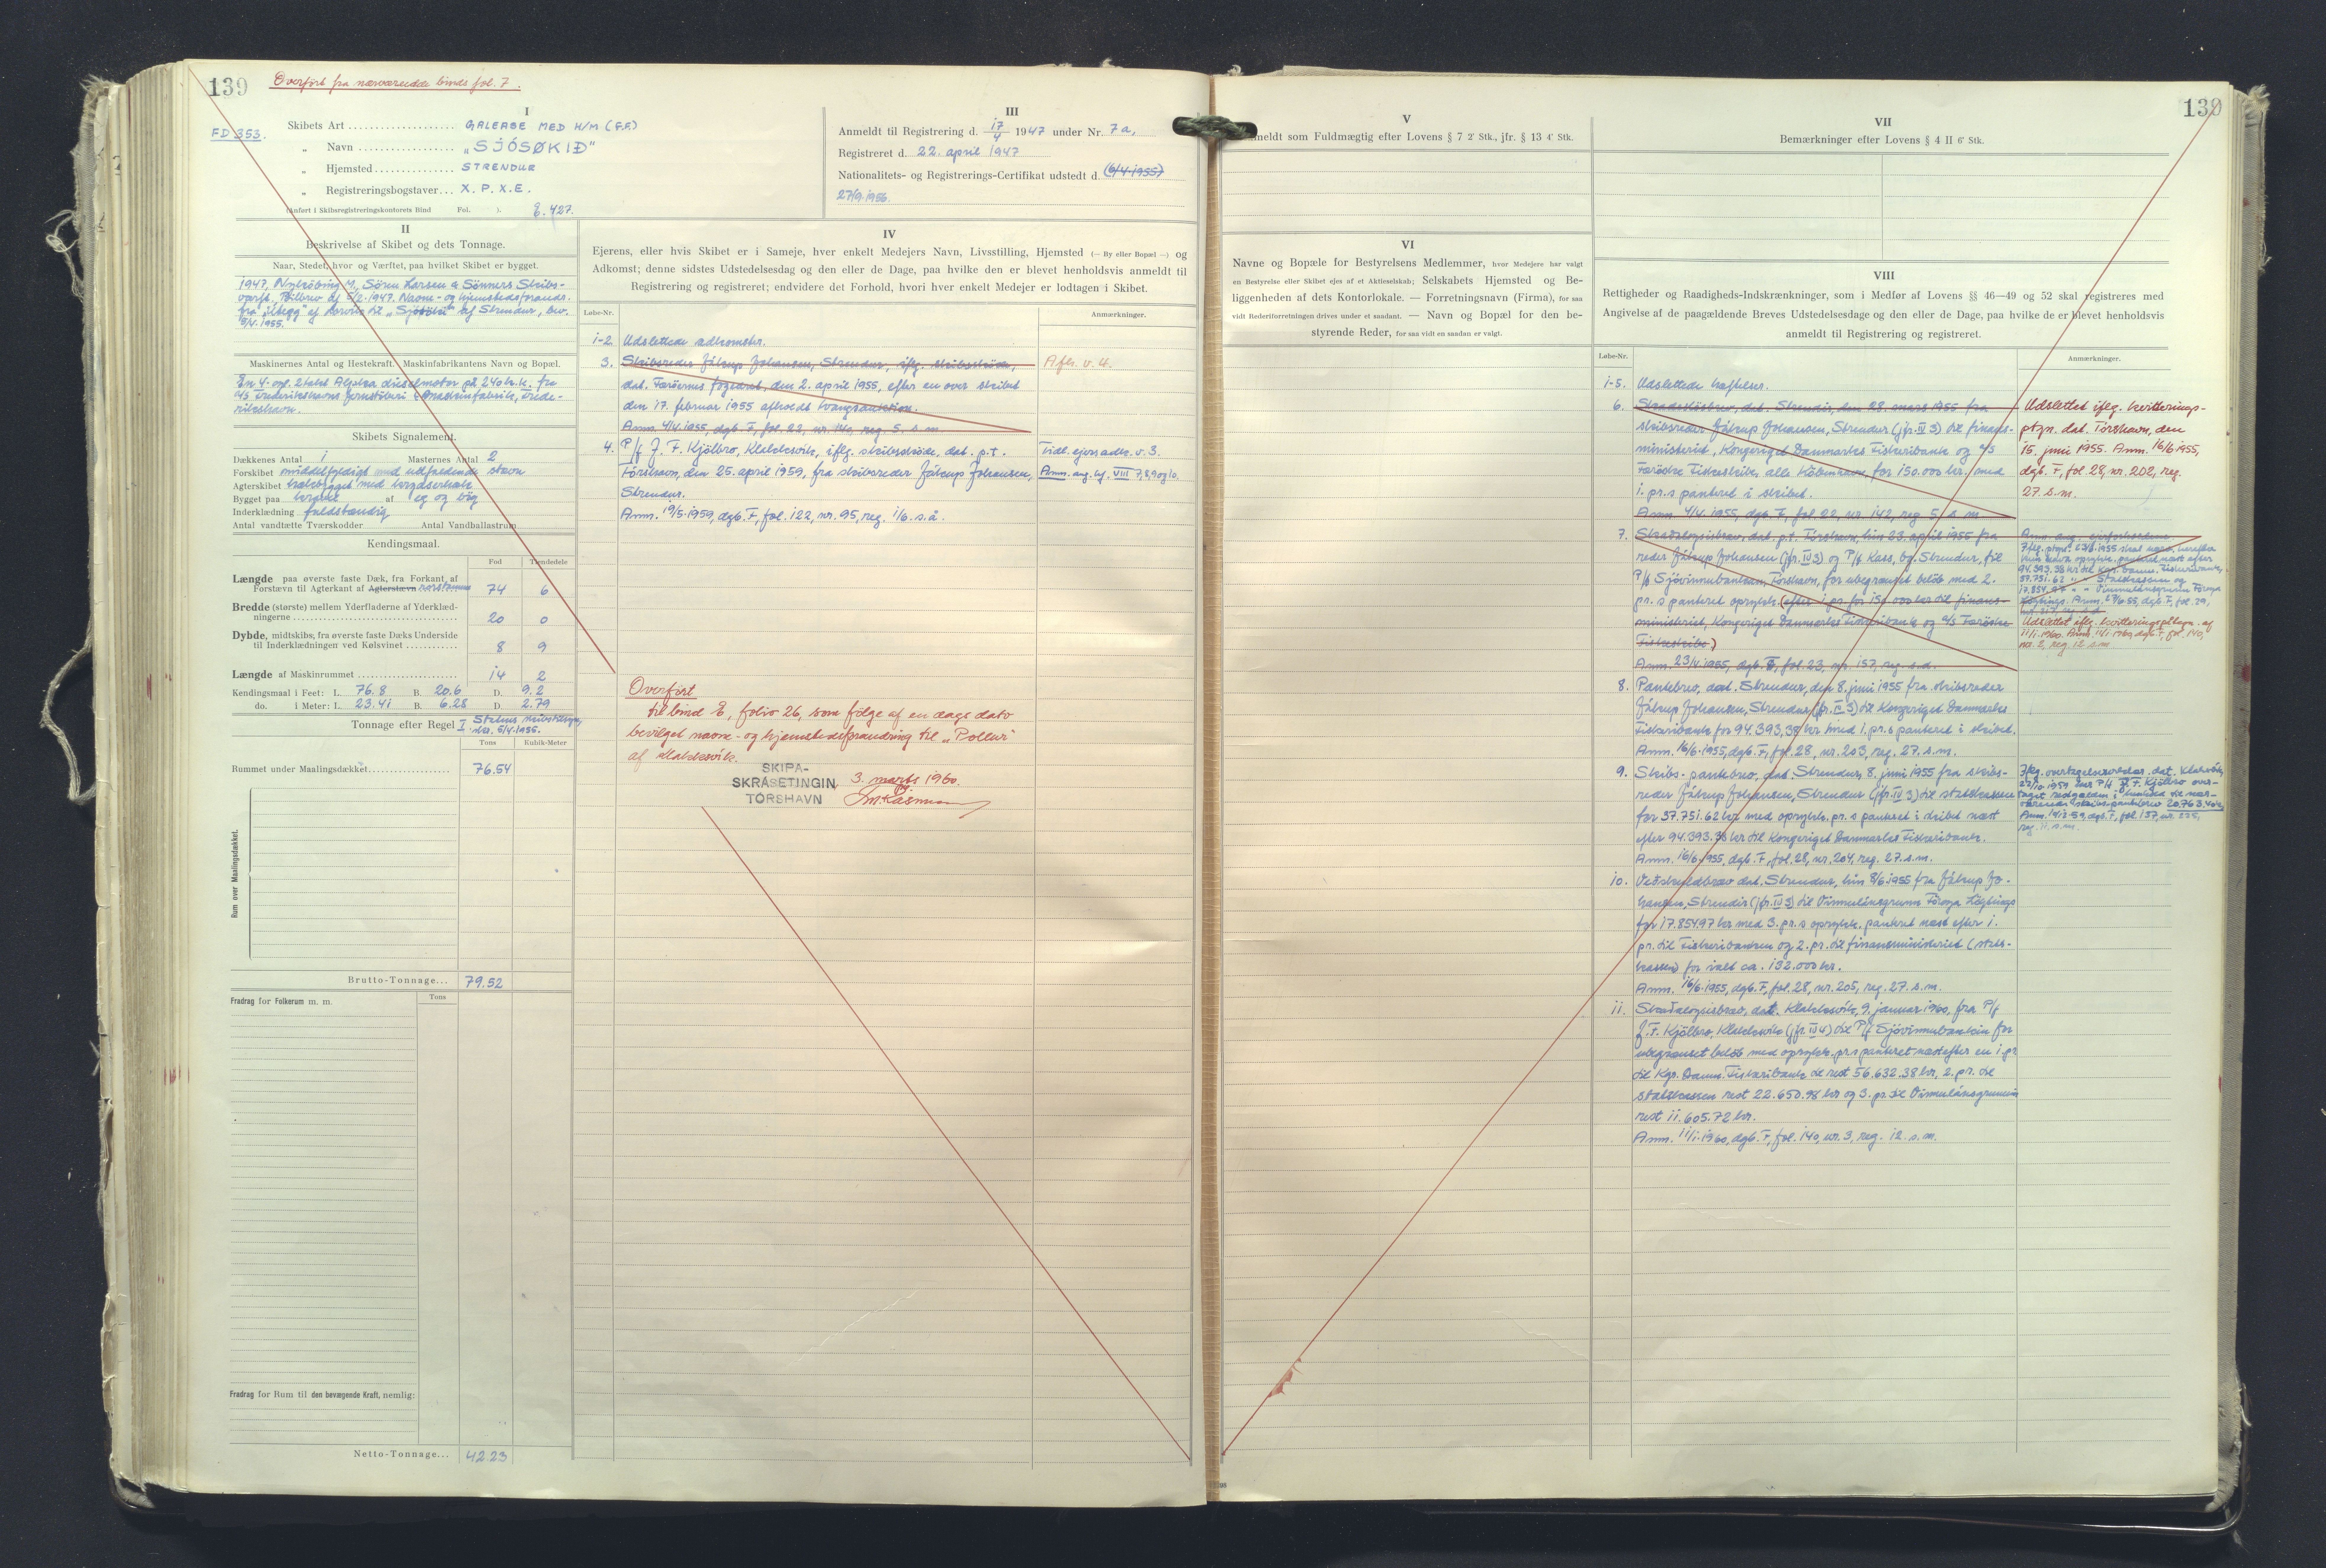 139
Overført fra nærværende binds fol. 7.
FD 353.
I
Skibets Art .................... GALEASE MED H/M (F.F.)
„ Navn .................. „SJÓSØKIÐ"
„ Hjemsted ............... STRENDUR
„ Registreringsbogstaver... X. P. X. E.
(Anført i Skibsregistreringskontorets Bind Fol. ). 427.
III
Anmeldt til Registrering d. 17/4 1947 under Nr. 7a,
Registreret d. 22. april 1947
Nationalitets- og Registrerings-Certifikat udstedt d. (6/4.1955)
27/9.1956.
II
Beskrivelse af Skibet og dets Tonnage.
Naar, Stedet, hvor og Værftet, paa hvilket Skibet er bygget.
1947, Nykøbing M, Sören Larsen & Sönners Skibs-
værft. Bilbrev af 5/2.1947. Navne- og hjemstedsforandr.
fra af til „Sjósøkið" af Strendur, bev.
5/4.1955.
Maskinernes Antal og Hestekraft. Maskinfabrikantens Navn og Bopæl.
En 4-cyl. 2takt Alpha dieselmotor på 240 h.k. fra
A/S Frederikshavns Jernstøberi & Maskinfabrik, Frede-
rikshavn.
Skibets Signalement.
Dækkenes Antal 1 Masternes Antal 2
Forskibet middelfyldigt med udfaldende stavn
Agterskibet med krydserhæk
Bygget paa kravel af eg og bøg
Inderklædning fuldstændig
Antal vandtætte Tværskodder Antal Vandballastrum
Kendingsmaal.
Fod Tiendedele
Længde paa øverste faste Dæk, fra Forkant af
Forstævn til Agterkant af Agterstævn rorstamme 74 6
Bredde (største) mellem Yderfladerne af Yderklæd-
ningerne 20 0
Dybde, midtskibs, fra øverste faste Dæks Underside
til Inderklædningen ved Kølsvinet 8 9
Længde af Maskinrummet 14 2
Kendingsmaal i Feet: L. 76.8 B. 20.6 D. 9.2
do. i Meter: L. 23.41 B. 6.28 D. 2.79
Tonnage efter Regel I Statens
5/4.1955.
Tons Kubik-Meter
Rummet under Maalingsdækket 76.54
Rum over Maalingsdækket.
Brutto-Tonnage... 79.52
Fradrag for Folkerum m. m. Tons
Fradrag for Rum til den bevægende Kraft, nemlig:
Netto-Tonnage... 42.23
IV
Ejerens, eller hvis Skibet er i Sameje, hver enkelt Medejers Navn, Livsstilling, Hjemsted (— By eller Bopæl —) og
Adkomst; denne sidstes Udstedelsesdag og den eller de Dage, paa hvilke den er blevet henholdsvis anmeldt til
Registrering og registreret; endvidere det Forhold, hvori hver enkelt Medejer er lodtagen i Skibet.
Løbe-Nr. Anmærkninger.
1-2. Udslettede adkomster.
3. Skibsreder Jákup Johansen, Strendur, iflg. skibsskøde, Afls. v. 4.
dat. Færöernes fogedret, den 2. april 1955, efter en over skibet
den 17. februar 1955 afholdt tvangsauktion.
Anm. 4/4.1955, dgb. F, fol. 22, nr. 140, reg. 5. s. m.
4. P/f J. F. Kjölbro, Klakksvik, iflg. skibsskøde, dat. p.t. Tidl. ejers adk. v. 3.
Tórshavn, den 25. april 1959, fra skibsreder Jákup Johansen, Anm. ang. hf. VIII 7, 8, 9 og 10.
Strendur.
Anm. 19/5.1959, dgb. F, fol. 122, nr. 95, reg. 1/6. s. å.
Overført
til bind E, folio 26, som følge af en dags dato
bevilget navne- og hjemstedsforandring til „Pollur"
af Klakksvik.
SKIPA-
SKRÁSETINGIN 3. marts 1960.
TÓRSHAVN
139
V
Anmeldt som Fuldmægtig efter Lovens § 7 2' Stk., jfr. § 13 4' Stk.
VI
Navne og Bopæle for Bestyrelsens Medlemmer, hvor Medejere har valgt
en Bestyrelse eller Skibet ejes af et Aktieselskab; Selskabets Hjemsted og Be-
liggenheden af dets Kontorlokale. — Forretningsnavn (Firma), for saa
vidt Rederiforretningen drives under et saadant. — Navn og Bopæl for den be-
styrende Reder, for saa vidt en saadan er valgt.
VII
Bemærkninger efter Lovens § 4 II 6' Stk.
VIII
Rettigheder og Raadigheds-Indskrænkninger, som i Medfør af Lovens §§ 46—49 og 52 skal registreres med
Angivelse af de paagældende Breves Udstedelsesdag og den eller de Dage, paa hvilke de er blevet henholdsvis
anmeldt til Registrering og registreret.
Løbe-Nr. Anmærkninger.
1-5. Udslettede hæftelser.
6. Skadesløsbrev, dat. Strendur, den 28. marts 1955 fra
skibsreder Jákup Johansen, Strendur (jfr. IV 3) til finans-
ministeriet, Kongeriget Danmarks Fiskeribank og A/S
Færöske Fiskeskibe, alle København, for 150.000 kr. med
1. pr.s panteret i skibet.
Anm. 4/4.1955, dgb. F, fol. 22, nr. 142, reg. 5. s. m.
Udslettet iflg. kvitterings-
ptgn. dat. Tórshavn, den
15. juni 1955. Anm. 16/6 1955,
dgb. F, fol. 28, nr. 202, reg.
27. s. m.
7. Skaðaloysisbrøv, dat. p.t. Tórshavn, hin 23. apríl 1955 fra
reder Jákup Johansen (jfr. IV 3) og P/f Kass, bg. Strendur, til
P/f Sjóvinnubankin, Tórshavn, for ubegrænset beløb med 2.
pr.s panteret oprykk. (efter 1. pr. for 150.000 kr. til finans-
ministeriet, Kongeriget Danmarks Fiskeribank og A/S Færöske
Fiskeskibe.)
Anm. 23/4.1955, dgb. F, fol. 23, nr. 157, reg. s. d.
94.393,38 kr. til Kgr. Danm. Fiskeribank,
37.751.62 „ „ Statskassen og
17.854,97 „ „ Vinnulánsgrunn Føroya
Løgtings.
Udslettet iflg. kvitteringspåtegn. af
11/1.1960. Anm. 11/1.1960, dgb. F, fol. 140,
nr. 2, reg. 12. s. m.
8. Pantebrev, dat. Strendur, den 8. juni 1955 fra skibsreder
Jákup Johansen, Strendur (jfr. IV 3) til Kongeriget Danmarks
Fiskeribank for 94.393,38 kr. med 1. pr.s panteret i skibet.
Anm. 16/6.1955, dgb. F, fol. 28, nr. 203, reg. 27. s. m.
9. Skibs-pantebrev, dat. Strendur, 8. juni 1955 fra skibs-
reder Jákup Johansen, Strendur (jfr. IV 3) til statskassen
for 37.751.62 kr. med oprykk. pr.s panteret i skibet næst
efter 94.393.38 kr. til Kongeriget Danmarks Fiskeribank.
Anm. 16/6.1955, dgb. F, fol. 28, nr. 204, reg. 27. s. m.
Iflg. overtagelseserklær. dat. Klaksvik,
22/10.1959 har P/f J. F. Kjölbro over-
taget restgælden i henhold til nær-
værende skibs-pantebrev 20.763.40 kr.
Anm. 10/12-59, dgb. F, fol. 137, nr. 235,
reg. 11. s. m.
10. Veðskuldbrøv dat. Strendur, hin 8/6.1955 fra Jákup Jo-
hansen, Strendur (jfr. IV 3) til Vinnulánsgrunn Føroya Løgtings
for 17.854.97 kr. med 3. pr.s oprykk. panteret næst efter 1.
pr. til Fiskeribanken og 2. pr. til finansministeriet (stats-
kassen) for ialt ca. 132.000 kr.
Anm. 16/6.1955, dgb. F, fol. 28, nr. 205, reg. 27. s. m.
11. Skaðaloysisbrøv, dat. Klakksvík, 9. januar 1960, fra P/f
J. F. Kjölbro, Klakksvík (jfr. IV 4) til P/f Sjóvinnubankin for
ubegrænset beløb med oprykk. pr.s panteret næst efter en 1. pr.
til Kgr. Danm. Fiskeribank til rest 56.632.38 kr., 2. pr. til
statskassen rest 22.650.98 kr og 3. pr. til Vinnulánsgrunnin
rest 11.605.72 kr.
Anm. 11/1.1960, dgb. F, fol. 140, nr. 3, reg. 12. s. m.